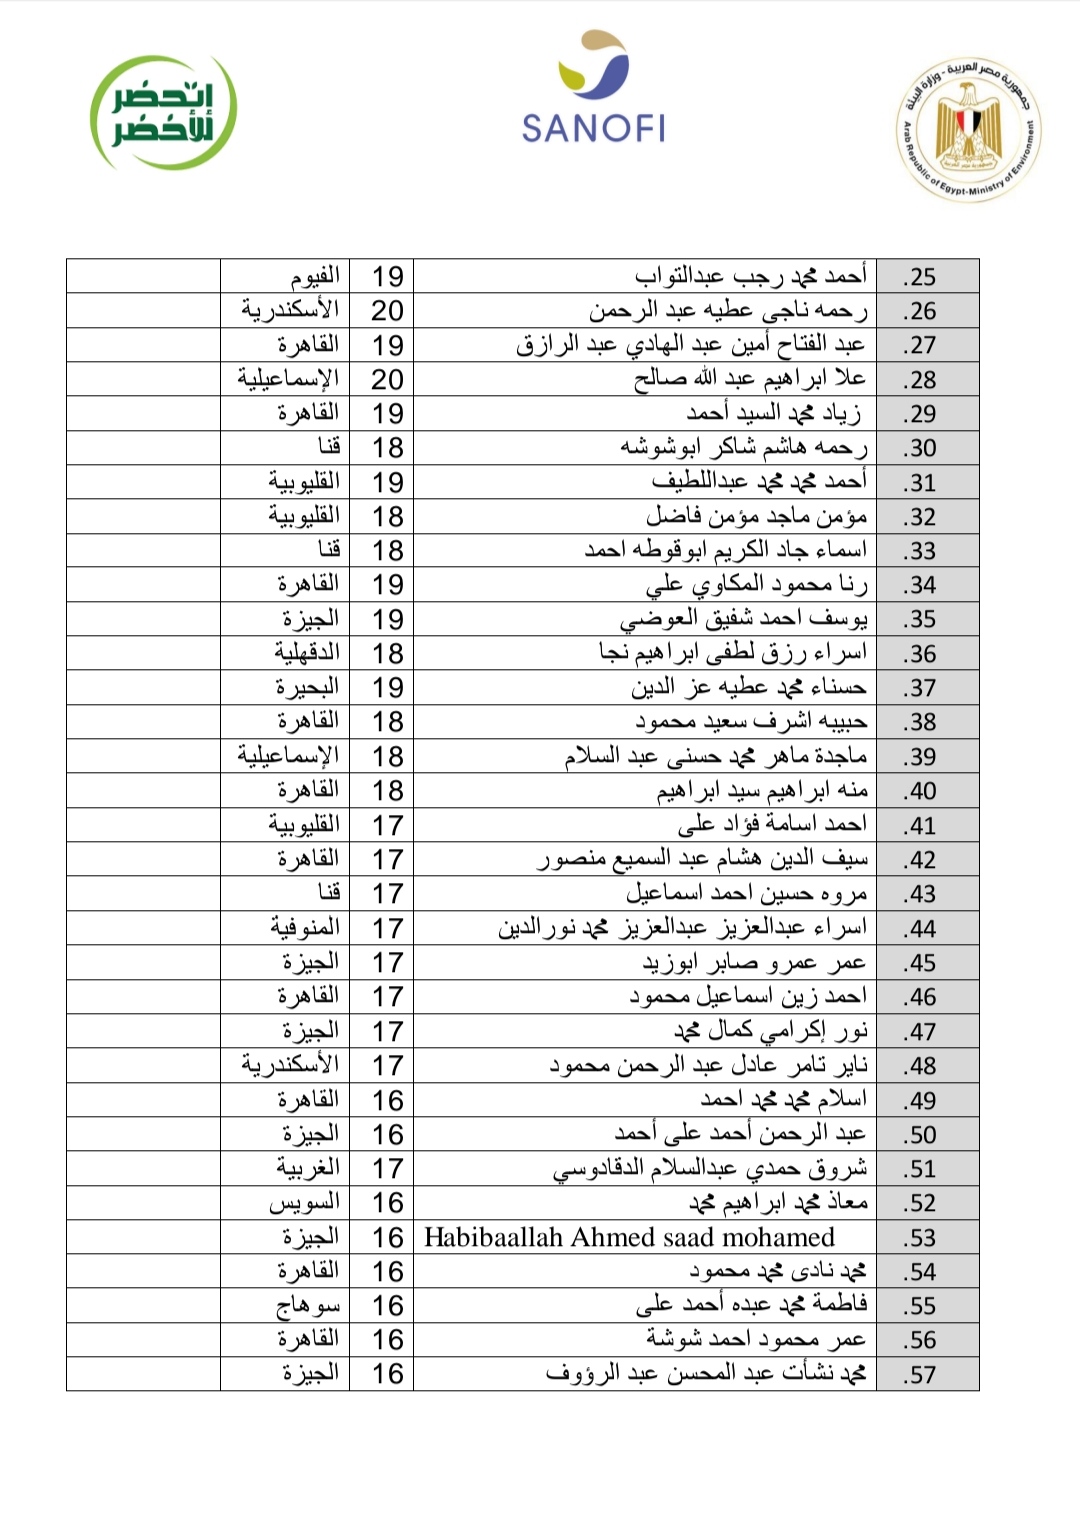 اتحضر
للأخضر
SANOFI
جمهورية مصر العربية - وزارة البيئة
Arab Republic of Egypt-Ministry of Environment
.25 أحمد محمد رجب عبدالتواب 19 الفيوم
.26 رحمه ناجى عطيه عبد الرحمن 20 الأسكندرية
.27 عبد الفتاح أمين عبد الهادي عبد الرازق 19 القاهرة
.28 علا ابراهيم عبد الله صالح 20 الإسماعيلية
.29 زياد محمد السيد أحمد 19 القاهرة
.30 رحمه هاشم شاكر ابوشوشه 18 قنا
.31 أحمد محمد محمد عبداللطيف 19 القليوبية
.32 مؤمن ماجد مؤمن فاضل 18 القليوبية
.33 اسماء جاد الكريم ابوقوطه احمد 18 قنا
.34 رنا محمود المكاوي علي 19 القاهرة
.35 يوسف احمد شفيق العوضي 19 الجيزة
.36 اسراء رزق لطفى ابراهيم نجا 18 الدقهلية
.37 حسناء محمد عطيه عز الدين 19 البحيرة
.38 حبيبه اشرف سعيد محمود 18 القاهرة
.39 ماجدة ماهر محمد حسنى عبد السلام 18 الإسماعيلية
.40 منه ابراهيم سيد ابراهيم 18 القاهرة
.41 احمد اسامة فؤاد على 17 القليوبية
.42 سيف الدين هشام عبد السميع منصور 17 القاهرة
.43 مروه حسين احمد اسماعيل 17 قنا
.44 اسراء عبدالعزيز عبدالعزيز محمد نورالدين 17 المنوفية
.45 عمر عمرو صابر ابوزيد 17 الجيزة
.46 احمد زين اسماعيل محمود 17 القاهرة
.47 نور إكرامي كمال محمد 17 الجيزة
.48 ناير تامر عادل عبد الرحمن محمود 17 الأسكندرية
.49 اسلام محمد محمد احمد 16 القاهرة
.50 عبد الرحمن أحمد على أحمد 16 الجيزة
.51 شروق حمدي عبدالسلام الدقادوسي 17 الغربية
.52 معاذ محمد ابراهيم محمد 16 السويس
.53 Habibaallah Ahmed saad mohamed 16 الجيزة
.54 محمد نادى محمد محمود 16 القاهرة
.55 فاطمة محمد عبده أحمد على 16 سوهاج
.56 عمر محمود احمد شوشة 16 القاهرة
.57 محمد نشأت عبد المحسن عبد الرؤوف 16 الجيزة